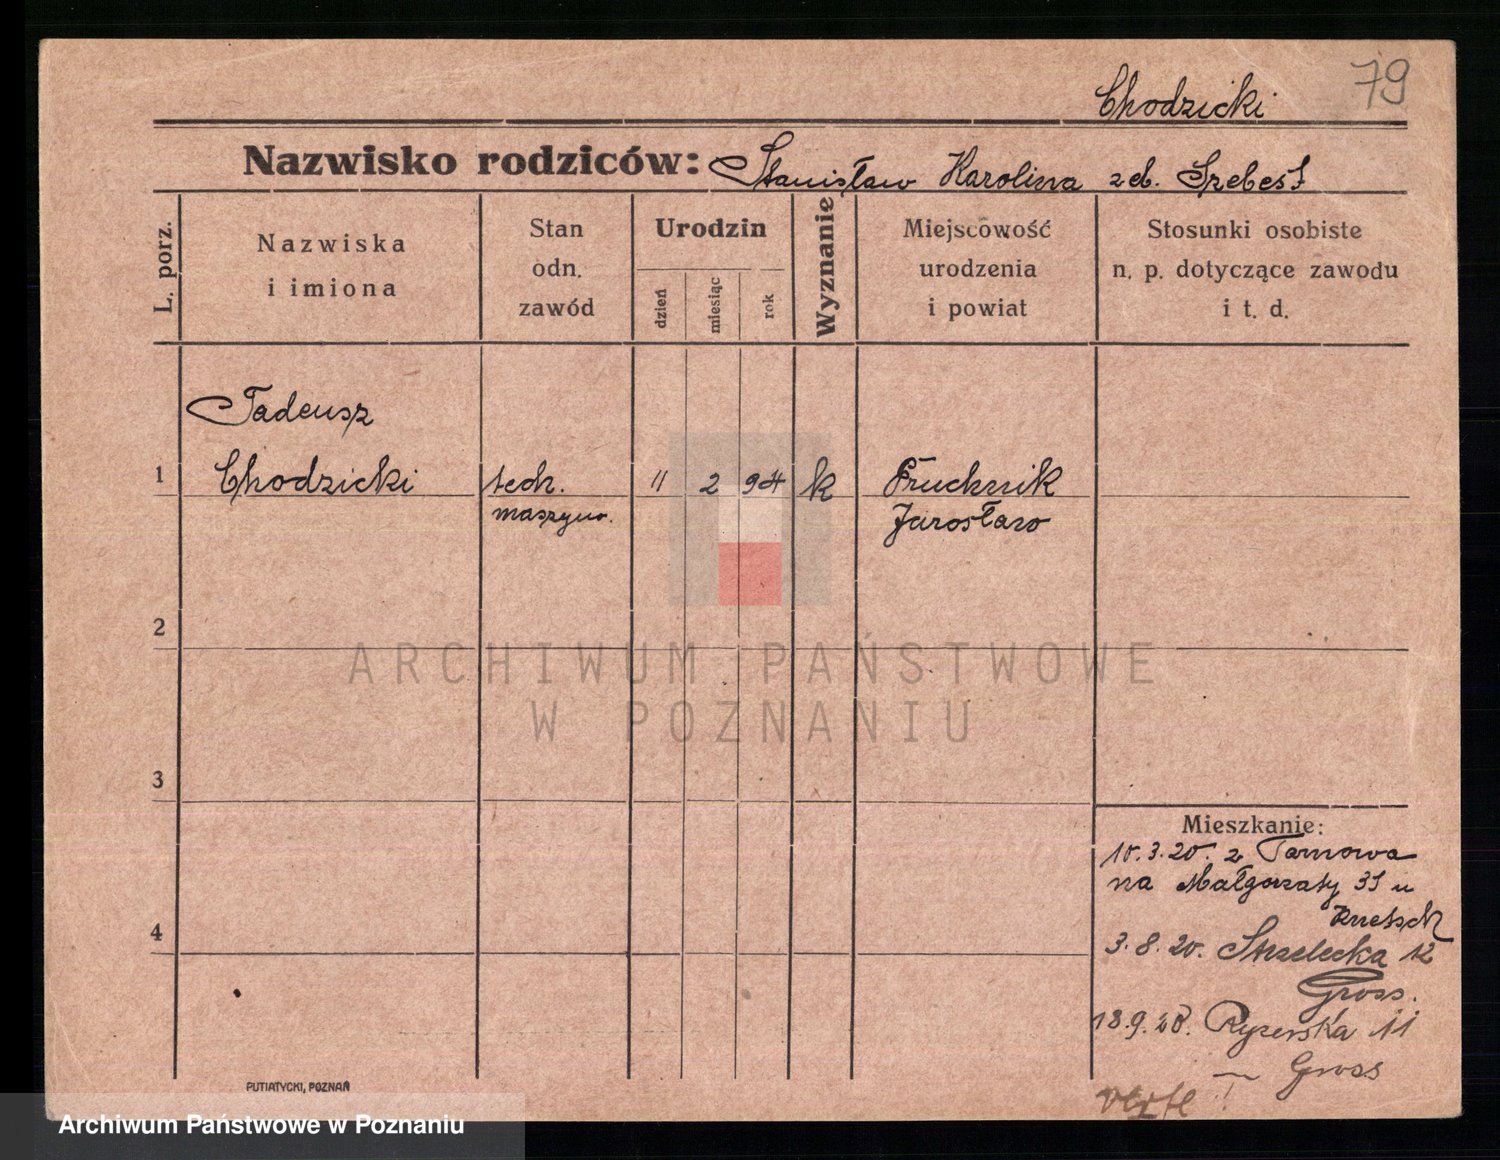 79
Chodzicki
Nazwisko rodziców: Stanisław Karolina
L. porz.
Nazwiska
i imiona
Stan
odn.
zawód
Urodzin
dzień
miesiąc
rok
Wyznanie
Miejscowość
urodzenia
i powiat
Stosunki osobiste
n. p. dotyczące zawodu
i t. d.
Tadeusz
1 Chodzicki tech. 11 2 94 k Pruchnik
maszyno. Jarosław
2
3
4
Mieszkanie:
10.3.20. z Tarnowa
na Małgorzaty 31 u
3.8.20. Strzelecka 12
Gross.
18.9.20. Rycerska 11
Gross
verte!
PUTIATYCKI, POZNAŃ
ARCHIWUM PAŃSTWOWE
W POZNANIU
Archiwum Państwowe w Poznaniu